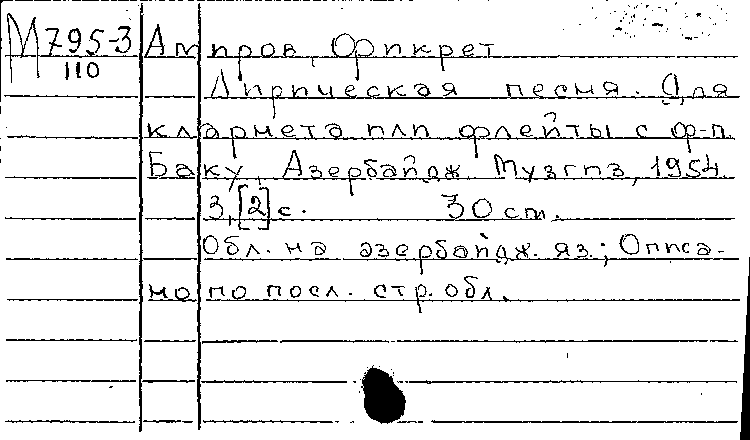 М 795-3
110
Амиров, Фикрет
Лирическая песня. Для
кларнета или флейты с ф-п.
Баку, Азербайдж. Музгиз, 1954.
3,[2]с. 30 cm.
Обл. на азербайдж. яз.; Описа-
но по посл. стр. обл.